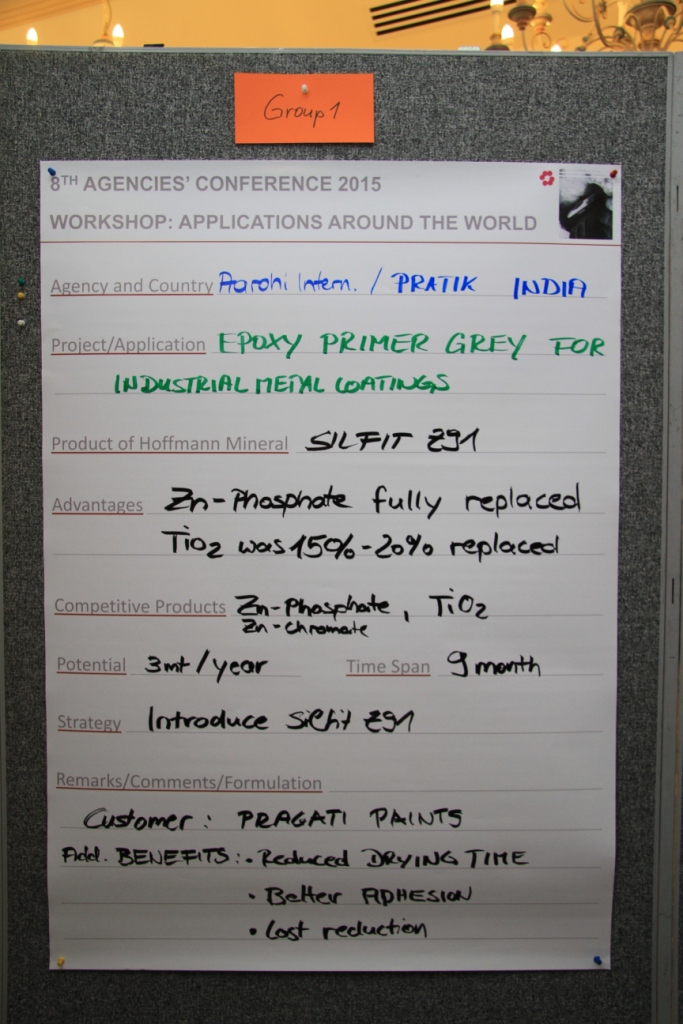 Group 1
8TH AGENCIES' CONFERENCE 2015
WORKSHOP: APPLICATIONS AROUND THE WORLD
Agency and Country Aarohi Intern. / PRATIK INDIA
Project/Application EPOXY PRIMER GREY FOR
INDUSTRIAL METAL COATINGS
Product of Hoffmann Mineral SILFIT Z91
Advantages Zn-Phosphate fully replaced
TiO2 was 15%-20% replaced
Competitive Products Zn-Phosphate, TiO2
Zn-Chromate
Potential 3mt/year Time Span 9 month
Strategy Introduce Silfit Z91
Remarks/Comments/Formulation
Customer: PRAGATI PAINTS
Add. BENEFITS: • Reduced DRYING TIME
• Better ADHESION
• Cost reduction